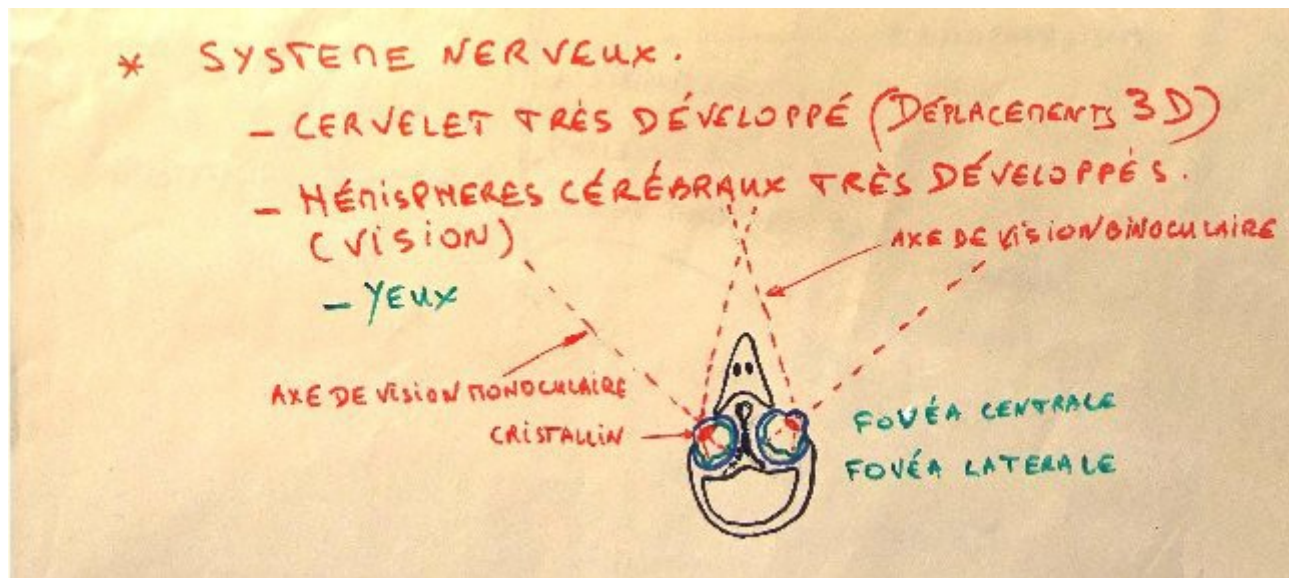 * SYSTEME NERVEUX.
- CERVELET TRÈS DÉVELOPPÉ (DÉPLACEMENTS 3D)
- HÉMISPHERES CÉRÉBRAUX TRÈS DÉVELOPPÉS.
(VISION)
AXE DE VISION BINOCULAIRE
- YEUX
AXE DE VISION MONOCULAIRE
CRISTALLIN
FOVÉA CENTRALE
FOVÉA LATERALE